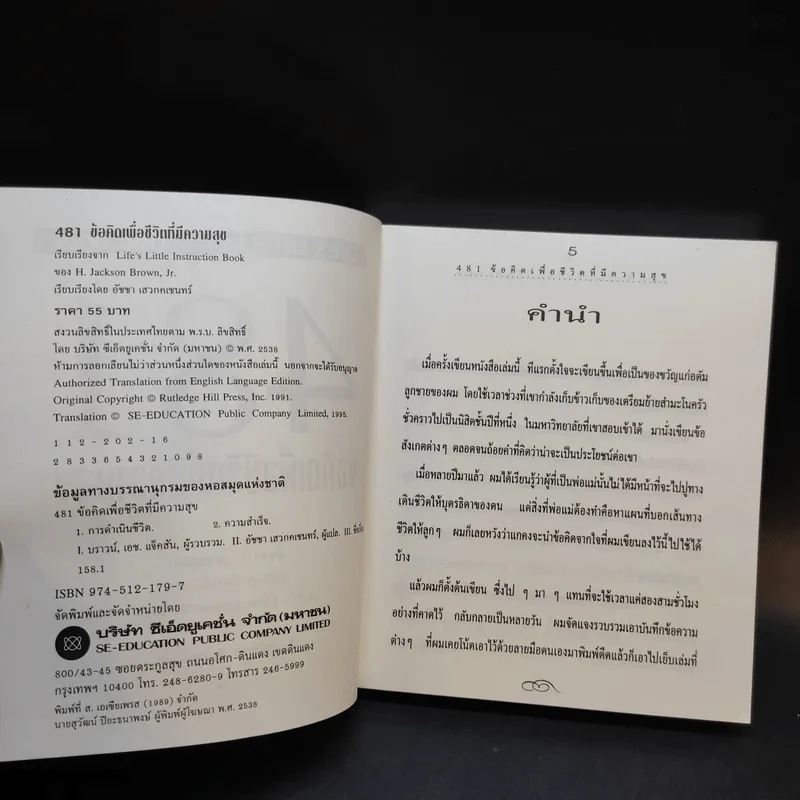 481 ข้อคิดเพื่อชีวิตที่มีความสุข
เรียบเรียงจาก Life's Little Instruction Book
ของ H. Jackson Brown, Jr.
เรียบเรียงโดย อัชชา เสวกคเชนทร์
ราคา 55 บาท
สงวนลิขสิทธิ์ในประเทศไทยตาม พ.ร.บ. ลิขสิทธิ์
โดย บริษัท ซีเอ็ดยูเคชั่น จำกัด (มหาชน) © พ.ศ. 2538
ห้ามการลอกเลียนไม่ว่าส่วนหนึ่งส่วนใดของหนังสือเล่มนี้ นอกจากจะได้รับอนุญาต
Authorized Translation from English Language Edition.
Original Copyright © Rutledge Hill Press, Inc. 1991.
Translation © SE-EDUCATION Public Company Limited, 1995.
1 1 2 - 2 0 2 - 1 6
2 8 3 3 6 5 4 3 2 1 0 9 8
ข้อมูลทางบรรณานุกรมของหอสมุดแห่งชาติ
481 ข้อคิดเพื่อชีวิตที่มีความสุข
1. การดำเนินชีวิต. 2. ความสำเร็จ.
I. บราวน์, เอช. แจ็คสัน, ผู้รวบรวม. II. อัชชา เสวกคเชนทร์, ผู้แปล. III.
158.1
ISBN 974-512-179-7
จัดพิมพ์และจัดจำหน่ายโดย
บริษัท ซีเอ็ดยูเคชั่น จำกัด (มหาชน)
SE-EDUCATION PUBLIC COMPANY LIMITED
800/43-45 ซอยตระกูลสุข ถนนอโศก-ดินแดง เขตดินแดง
กรุงเทพฯ 10400 โทร. 248-6280-9 โทรสาร 246-5999
พิมพ์ที่ ส. เอเซียเพรส (1989) จำกัด
นายสุวัฒน์ ปิยะธนาพงษ์ ผู้พิมพ์ผู้โฆษณา พ.ศ. 2538
5
481 ข้อคิดเพื่อชีวิตที่มีความสุข
คำนำ
เมื่อครั้งเขียนหนังสือเล่มนี้ ทีแรกตั้งใจจะเขียนขึ้นเพื่อเป็นของขวัญแก่อดัม
ลูกชายของผม โดยใช้เวลาช่วงที่เขากำลังเก็บข้าวเก็บของเตรียมย้ายสำมะโนครัว
ชั่วคราวไปเป็นนิสิตชั้นปีที่หนึ่ง ในมหาวิทยาลัยที่เขาสอบเข้าได้ มานั่งเขียนข้อ
สังเกตต่างๆ ตลอดจนถ้อยคำที่คิดว่าน่าจะเป็นประโยชน์ต่อเขา
เมื่อหลายปีมาแล้ว ผมได้เรียนรู้ว่าผู้ที่เป็นพ่อแม่นั้นไม่ได้มีหน้าที่จะไปปูทาง
เดินชีวิตให้บุตรธิดาของตน แต่สิ่งที่พ่อแม่ต้องทำคือหาแผนที่บอกเส้นทาง
ชีวิตให้ลูกๆ ผมก็เลยหวังว่าแกคงจะนำข้อคิดจากใจที่ผมเขียนลงไว้นี้ไปใช้ได้
บ้าง
แล้วผมก็ตั้งต้นเขียน ซึ่งไป ๆ มา ๆ แทนที่จะใช้เวลาแค่สองสามชั่วโมง
อย่างที่คาดไว้ กลับกลายเป็นหลายวัน ผมจัดแจงรวบรวมเอาบันทึกข้อความ
ต่างๆ ที่ผมเคยโน้ตเอาไว้ด้วยลายมือตนเองมาพิมพ์ดีดแล้วก็เอาไปเย็บเล่มที่